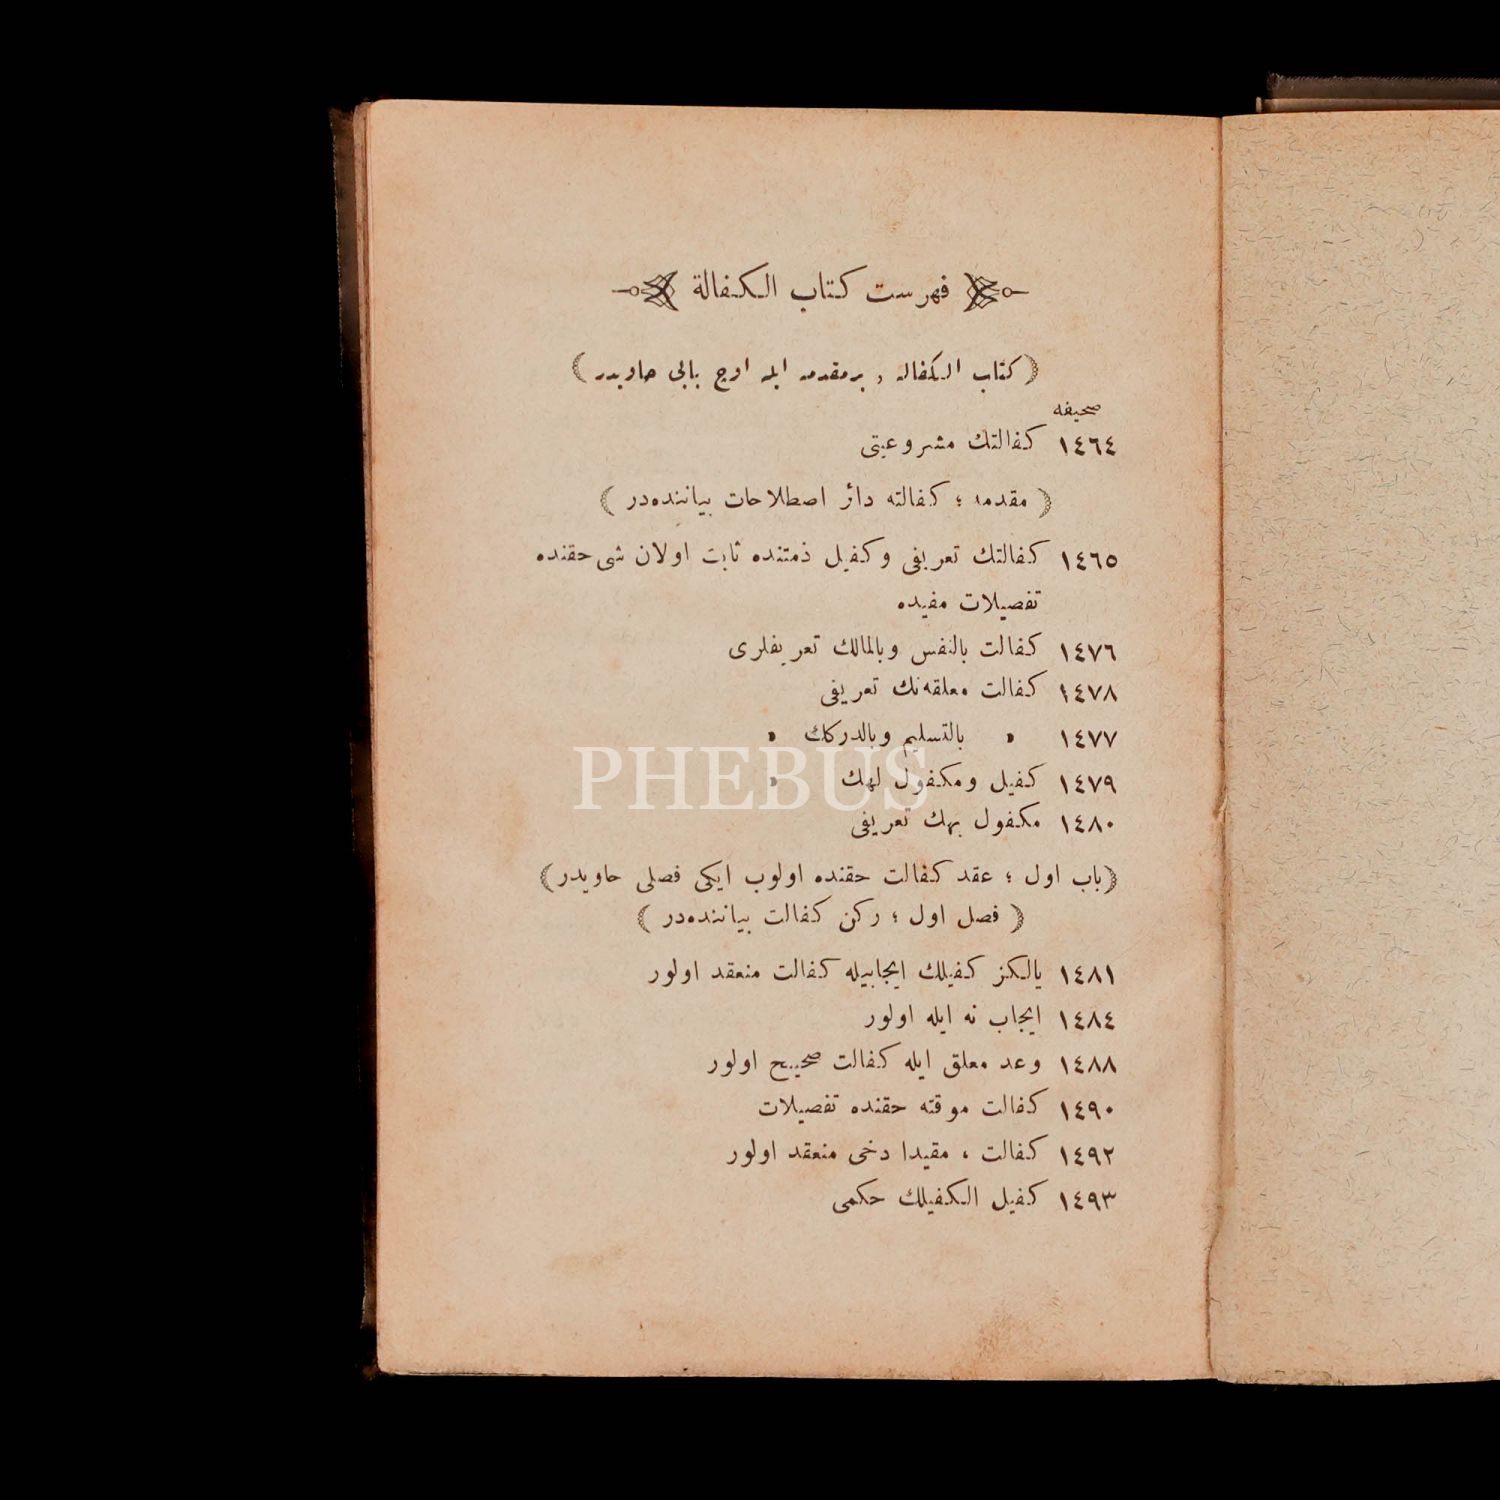 فهرست كتاب الكفالة
(كتاب الكفاله، بر مقدمه ايله اوچ بابى حاويدر)
صحيفه
١٤٦٤ كفالتك مشروعيتى
(مقدمه ؛ كفالته دائر اصطلاحات بياننده‌در)
١٤٦٥ كفالتك تعريفى وكفيل ذمتنده ثابت اولان شى حقنده
تفصيلات مفيده
١٤٧٦ كفالت بالنفس وبالمالك تعريفلرى
١٤٧٨ كفالت معلقه‌نك تعريفى
١٤٧٧ » بالتسليم وبالدركك »
١٤٧٩ كفيل ومكفول لهك »
PHEBUS
١٤٨٠ مكفول بهك تعريفى
(باب اول ؛ عقد كفالت حقنده اولوب ايكى فصلى حاويدر)
(فصل اول ؛ ركن كفالت بياننده‌در)
١٤٨١ يالكز كفيلك ايجابيله كفالت منعقد اولور
١٤٨٤ ايجاب نه ايله اولور
١٤٨٨ وعد معلق ايله كفالت صحيح اولور
١٤٩٠ كفالت موقته حقنده تفصيلات
١٤٩٢ كفالت ، مقيدا دخى منعقد اولور
١٤٩٣ كفيل الكفيلك حكمى